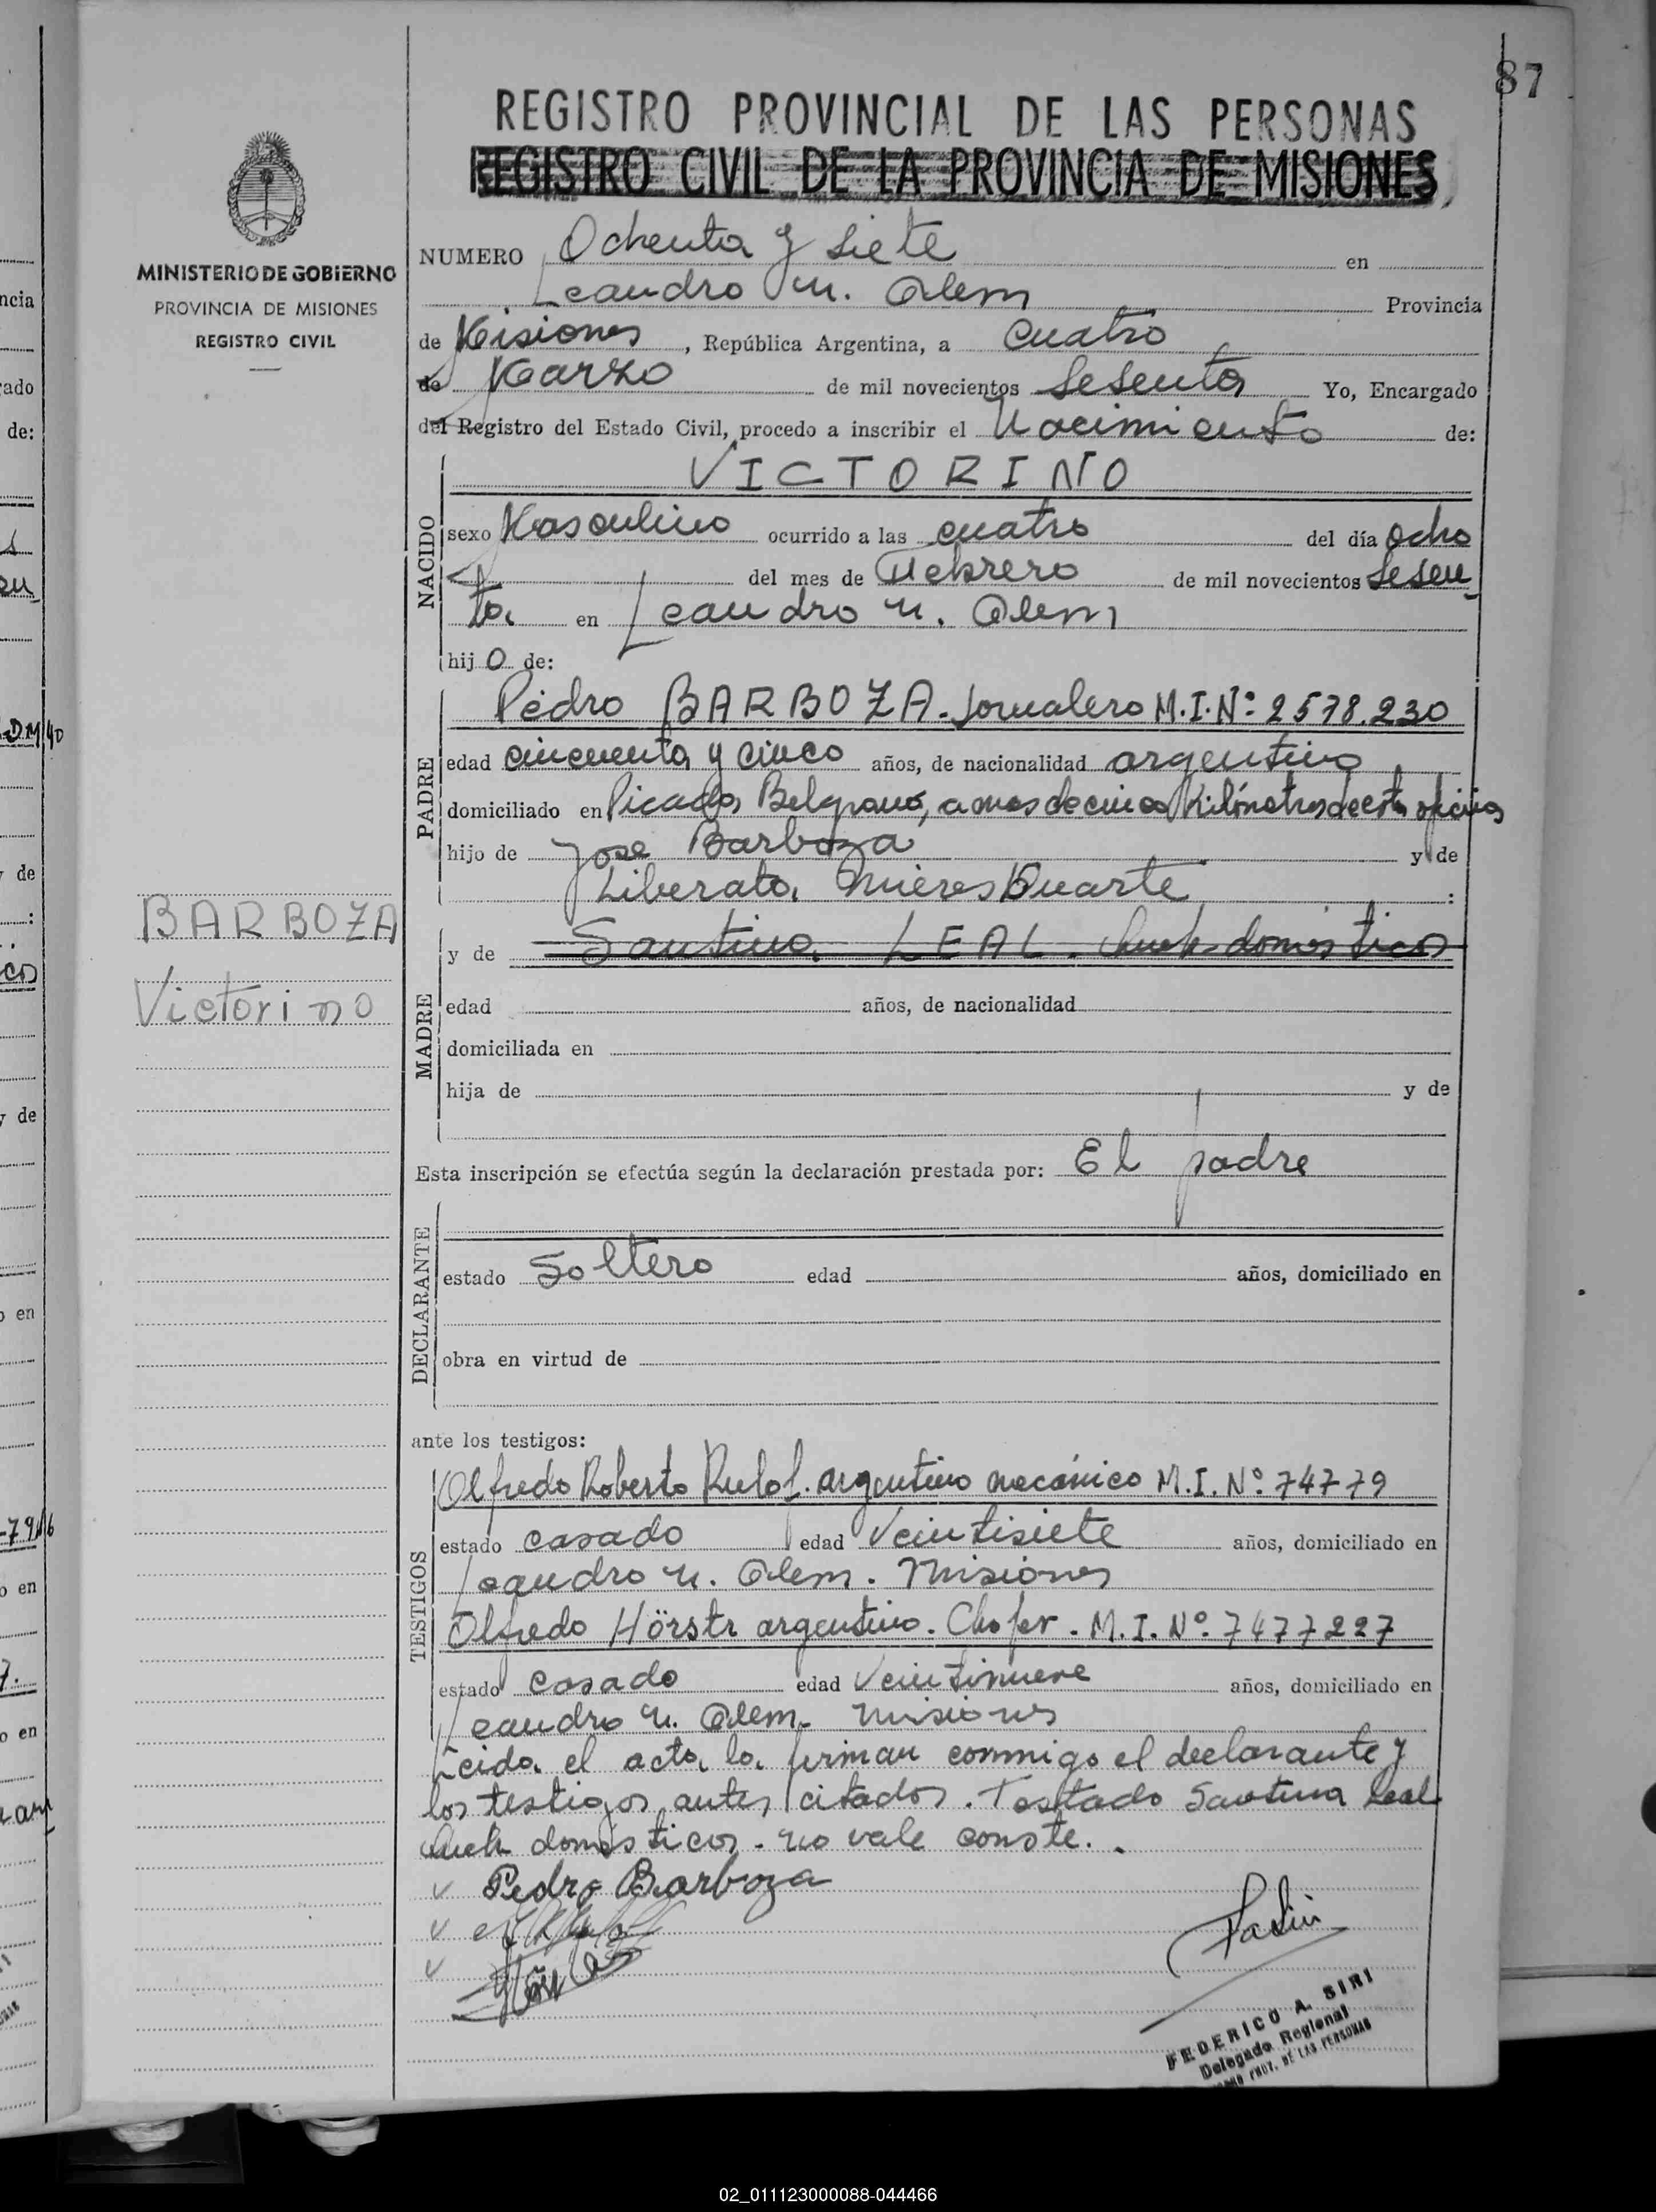 87
REGISTRO PROVINCIAL DE LAS PERSONAS
REGISTRO CIVIL DE LA PROVINCIA DE MISIONES
MINISTERIO DE GOBIERNO
PROVINCIA DE MISIONES
REGISTRO CIVIL
NUMERO Ochenta y siete en
Leandro N. Alem Provincia
de Misiones, República Argentina, a cuatro
de Marzo de mil novecientos Sesenta Yo, Encargado
del Registro del Estado Civil, procedo a inscribir el Nacimiento de:
VICTORINO
NACIDO
sexo Masculino ocurrido a las cuatro del día ocho
del mes de Febrero de mil novecientos Sesen
ta en Leandro N. Alem
hijo de:
PADRE
Pedro BARBOZA. Jornalero M.I.Nº: 2578.230
edad cincuenta y cinco años, de nacionalidad argentino
domiciliado en Picada Belgrano, a mas de cinco Kilómetros de esta oficina
hijo de Jose Barboza y de
Liberata Mieres Duarte :
BARBOZA
Victorino
MADRE
y de Santina LEAL. Queh domésticos
edad años, de nacionalidad
domiciliada en
hija de y de
Esta inscripción se efectúa según la declaración prestada por: El padre
DECLARANTE
estado Soltero edad años, domiciliado en
obra en virtud de
ante los testigos:
TESTIGOS
Alfredo Roberto argentino mecánico M.I. Nº 74779
estado casado edad Veintisiete años, domiciliado en
Leandro N. Alem. Misiones
Alfredo Hörstr argentino. Chofer. M.I. Nº 7477227
estado casado edad Veintinueve años, domiciliado en
Leandro N. Alem. Misiones
Leida el acta la firman conmigo el declarante y
los testigos antes citados. Testado Santina Leal
Queh domésticos. no vale conste.
Pedro Barboza
FEDERICO A. SIRI
Delegado Regional
PROV. DE LAS PERSONAS
02_011123000088-044466